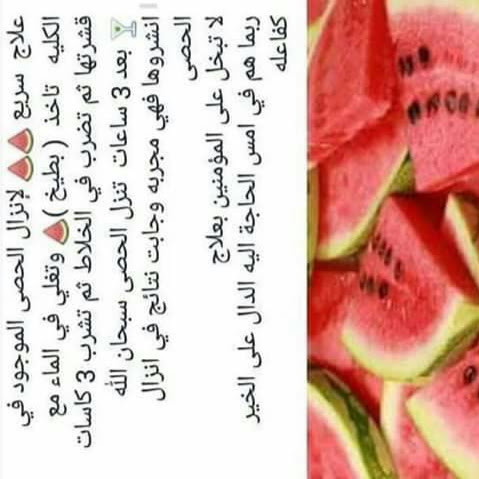 علاج سريع 🍉🍉 لإنزال الحصى الموجود في
الكليه  تاخذ ( بطيخ )🍉 وتغلي في الماء مع
قشرتها ثم تضرب في الخلاط ثم تشرب 3 كاسات
🍸 بعد 3 ساعات  تنزل الحصى سبحان الله
انشروها فهي مجربه وجابت نتائج في انزال
الحصى
لا تبخل على المؤمنين بعلاج
ربما هم في امس الحاجة اليه الدال على الخير
كفاعله